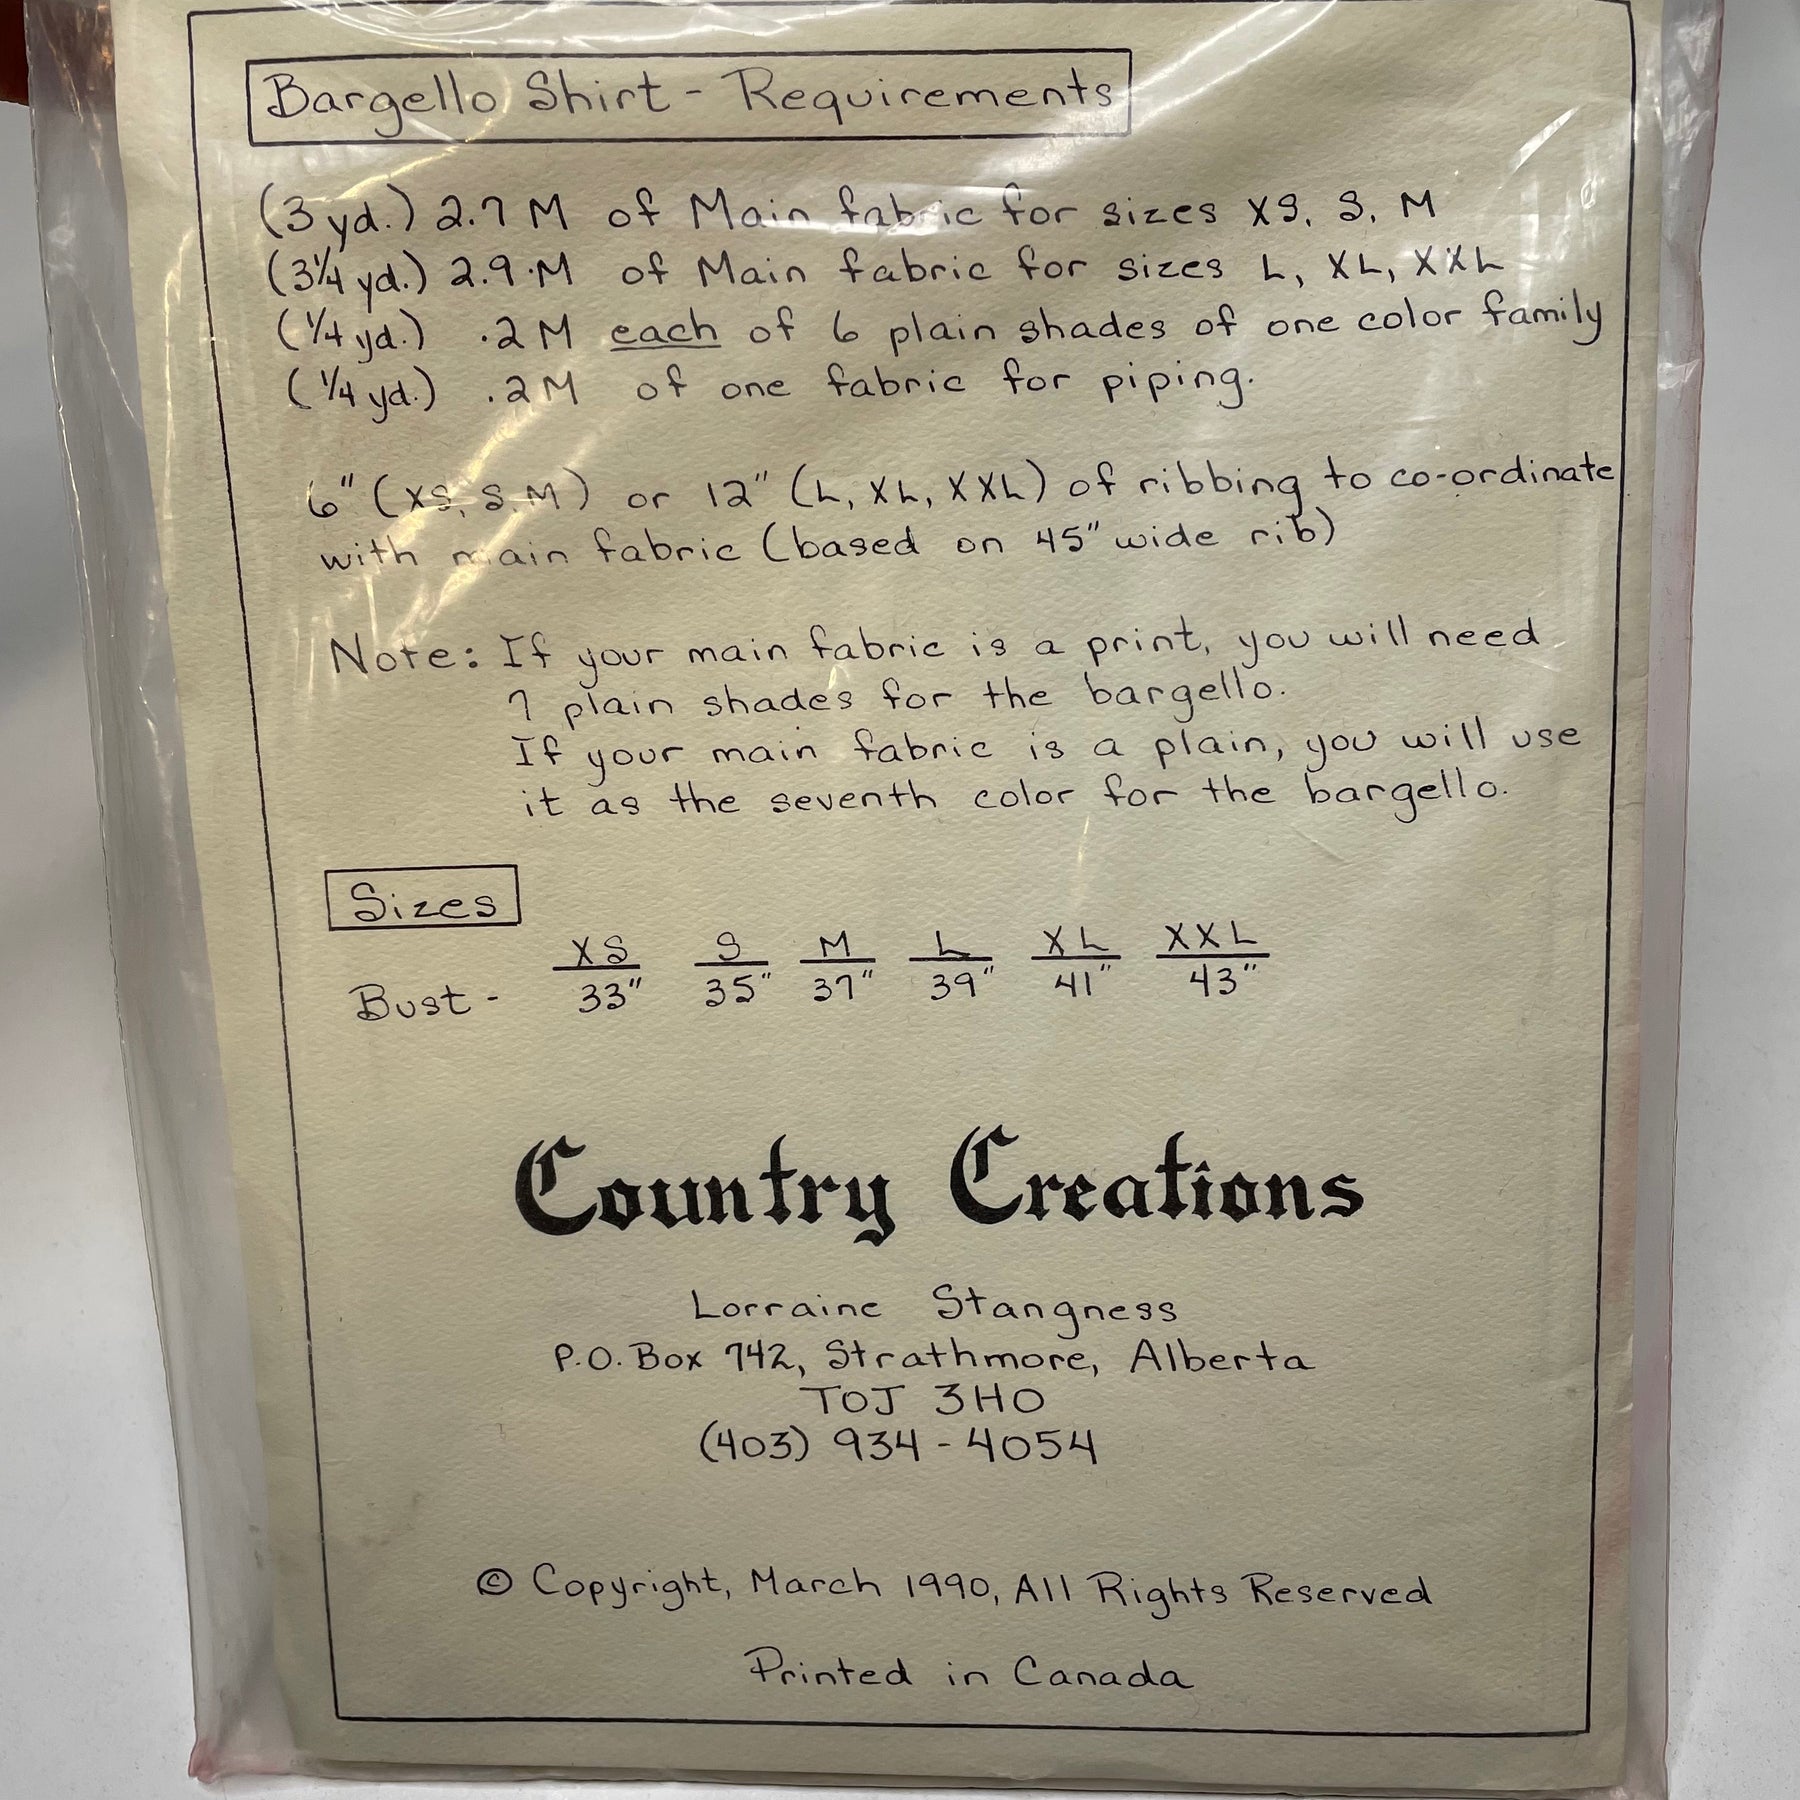 Bargello Shirt - Requirements
(3 yd.) 2.7 M of Main fabric for sizes XS, S, M
(3 1/4 yd.) 2.9 M of Main fabric for sizes L, XL, XXL
(1/4 yd.) .2 M each of 6 plain shades of one color family
(1/4 yd.) .2 M of one fabric for piping.
6" (XS, S, M) or 12" (L, XL, XXL) of ribbing to co-ordinate
with main fabric (based on 45" wide rib)
Note: If your main fabric is a print, you will need
7 plain shades for the bargello.
If your main fabric is a plain, you will use
it as the seventh color for the bargello.
Sizes
XS S M L XL XXL
Bust - 33" 35" 37" 39" 41" 43"
Country Creations
Lorraine Stangness
P.O. Box 742, Strathmore, Alberta
T0J 3H0
(403) 934-4054
© Copyright, March 1990, All Rights Reserved
Printed in Canada